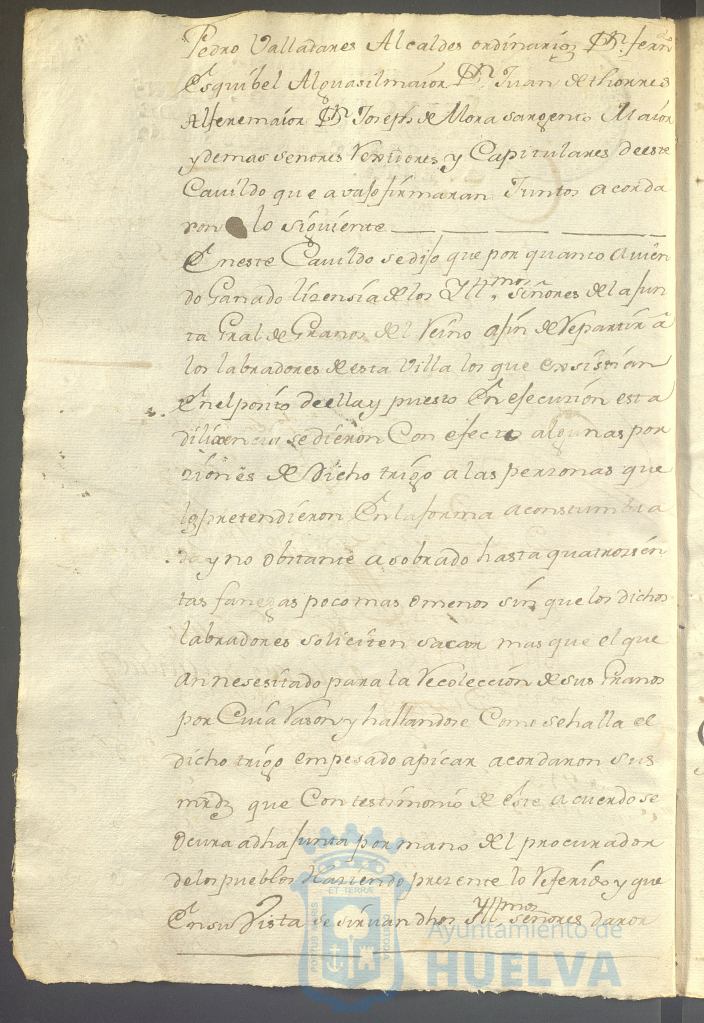 Pedro Valladares Alcaldes ordinarios Dn. ferndo
Esquibel Alguasilmaior Dn. Juan de thorres
Alferemaior Dn. Joseph de Mora sargento Maior
y demas señores Rexidores y Capitulares deeste
Cavildo que avajo firmaran Juntos acorda
ron lo siguiente
En este Cavildo se dijo que por quanto avien
do Ganado lizensia de los Yllmos. señores de la Jun
ta Gral de Granos del Reino afin de Repartir â
los labradores de esta Villa los que exsistian
En el posito de ella y puesto En ejecusion esta
dilixencia se dieron Con efecto algunas por
ziones de Dicho trigo a las perzonas que
lo pretendieron En la forma aconstumbra
da y no obstante a sobrado hasta quatrozien
tas fanegas poco mas o menos sin que los dichos
labradores soliciten sacar mas que el que
an nesesitado para la Recoleccion de sus Granos
por Cuia Rason y hallandose Como se halla el
dicho trigo empesado a picar acordaron sus
mrdz que Con testimonio de este acuerdo se
ocura a dha Junta por mano del procurador
de los pueblos Haziendo prezente lo Referido y que
En su Vista se sirvan dhos Yllmos. señores dar or
PORTUS MARIS
ET TERRÆ
CUSTODIA
Ayuntamiento de
HUELVA